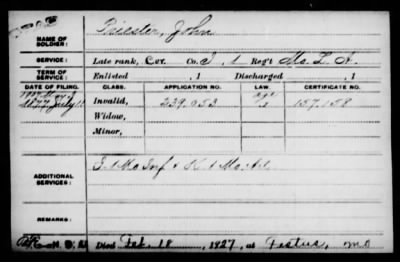 NAME OF SOLDIER: Priester, John
SERVICE: Late rank, Cor. Co. I, 1 Reg't Mo. L. A.
TERM OF SERVICE: Enlisted , 1 Discharged , 1
DATE OF FILING. CLASS. APPLICATION NO. LAW. CERTIFICATE NO.
1877 July Invalid, 239.053 157.158
Widow,
Minor,
ADDITIONAL SERVICES: I 1 Mo Inf & K 1 Mo. Art.
REMARKS:
Died Feb. 18, 1927, at Festus, Mo